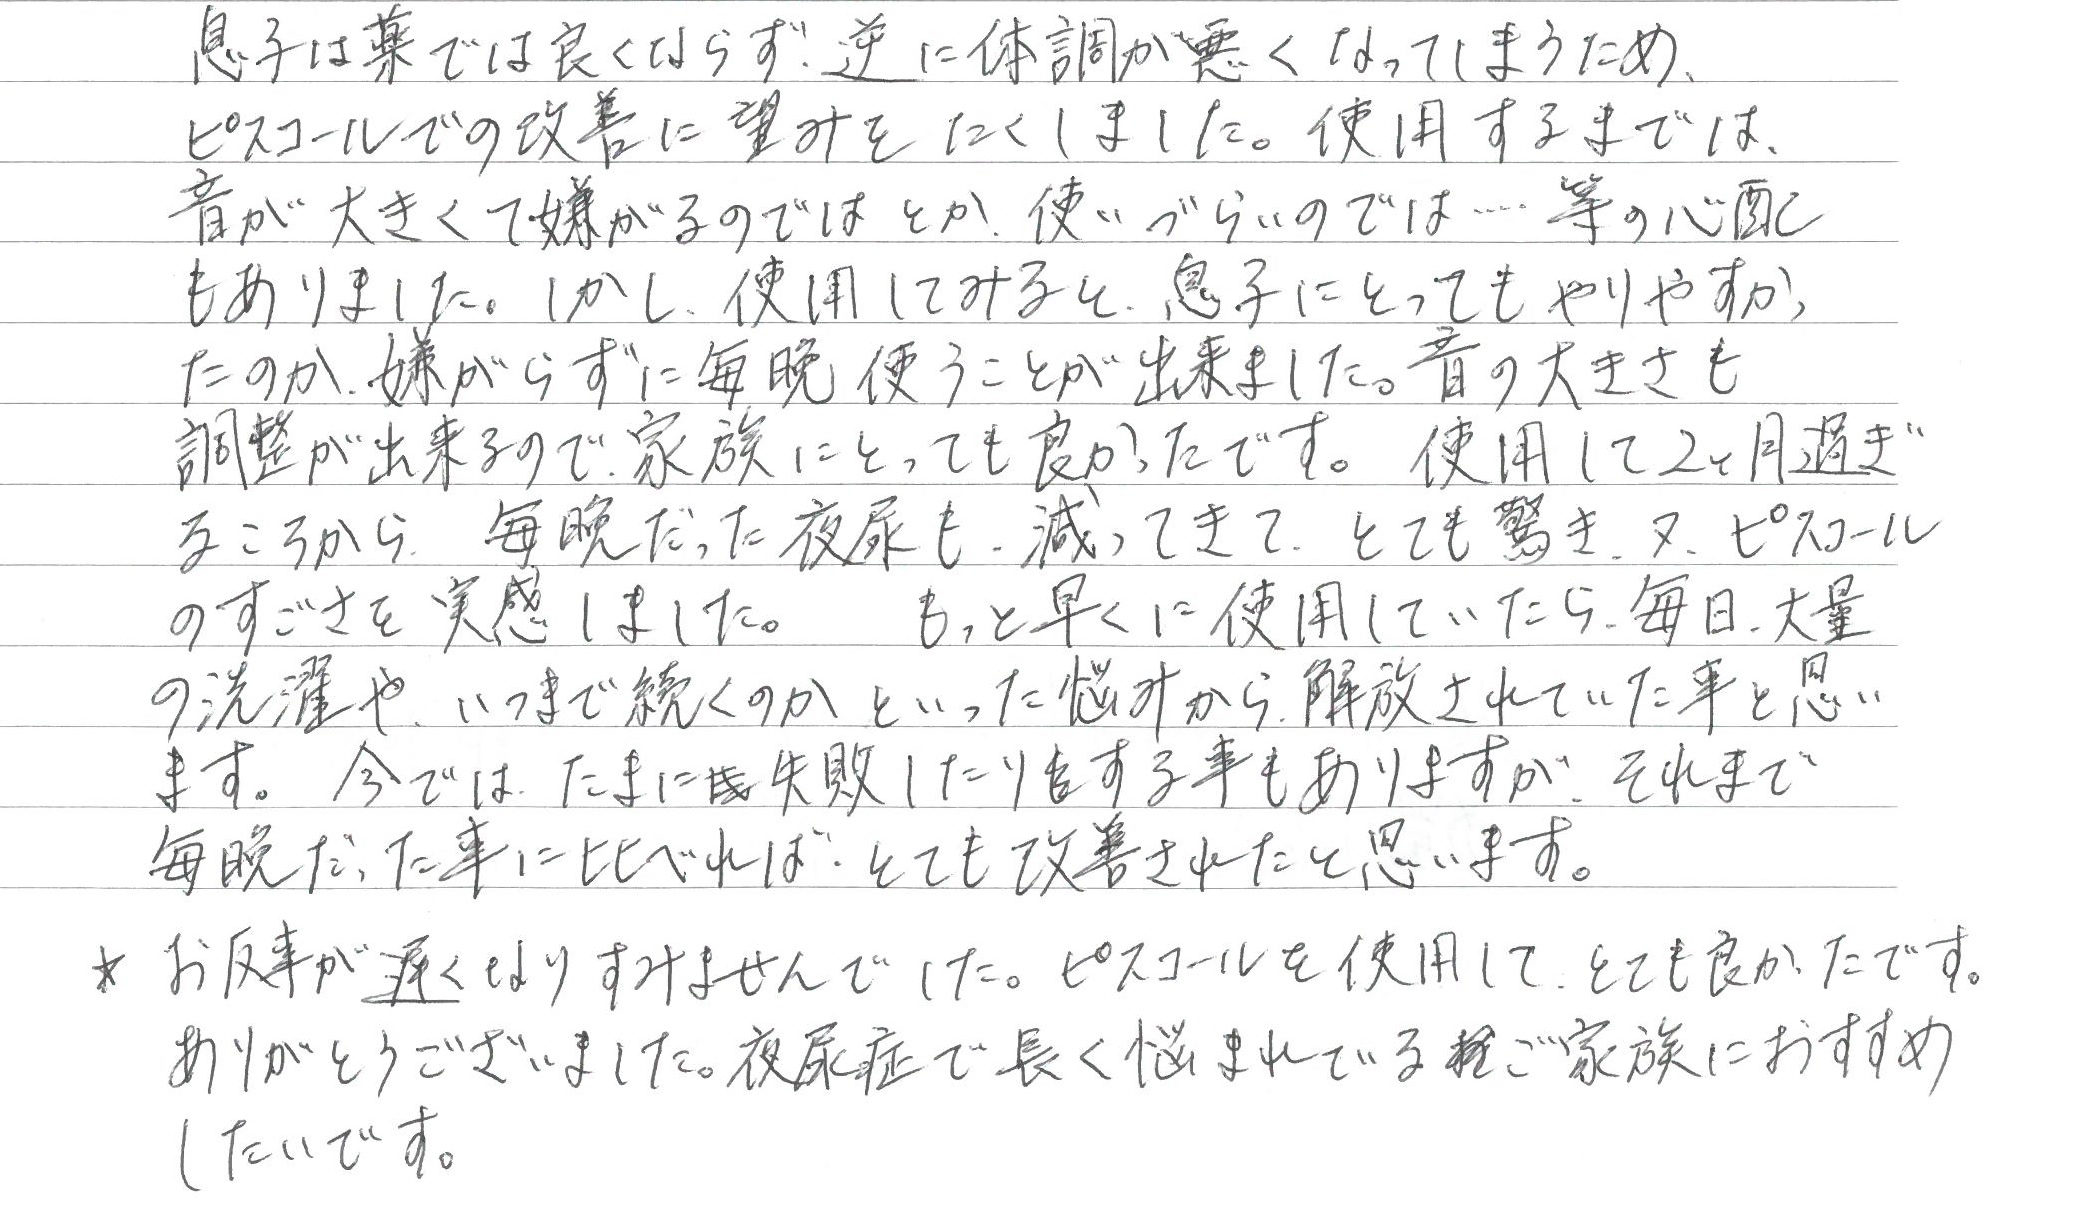 息子は薬では良くならず、逆に体調が悪くなってしまうため、
ピスコールでの改善に望みをたくしました。使用するまでは、
音が大きくて嫌がるのではとか、使いづらいのでは…等の心配
もありました。しかし、使用してみると、息子にとってもやりやすかっ
たのか、嫌がらずに毎晩使うことが出来ました。音の大きさも
調整が出来るので、家族にとっても良かったです。使用して2ヶ月過ぎ
るころから、毎晩だった夜尿も、減ってきて、とても驚き、又、ピスコール
のすごさを実感しました。 もっと早くに使用していたら、毎日、大量
の洗濯や、いつまで続くのかといった悩みから、解放されていた事と思い
ます。今では、たまに失敗したりする事もありますが、それまで
毎晩だった事に比べれば、とても改善されたと思います。
* お返事が遅くなりすみませんでした。ピスコールを使用して、とても良かったです。
ありがとうございました。夜尿症で長く悩まれているご家族におすすめ
したいです。